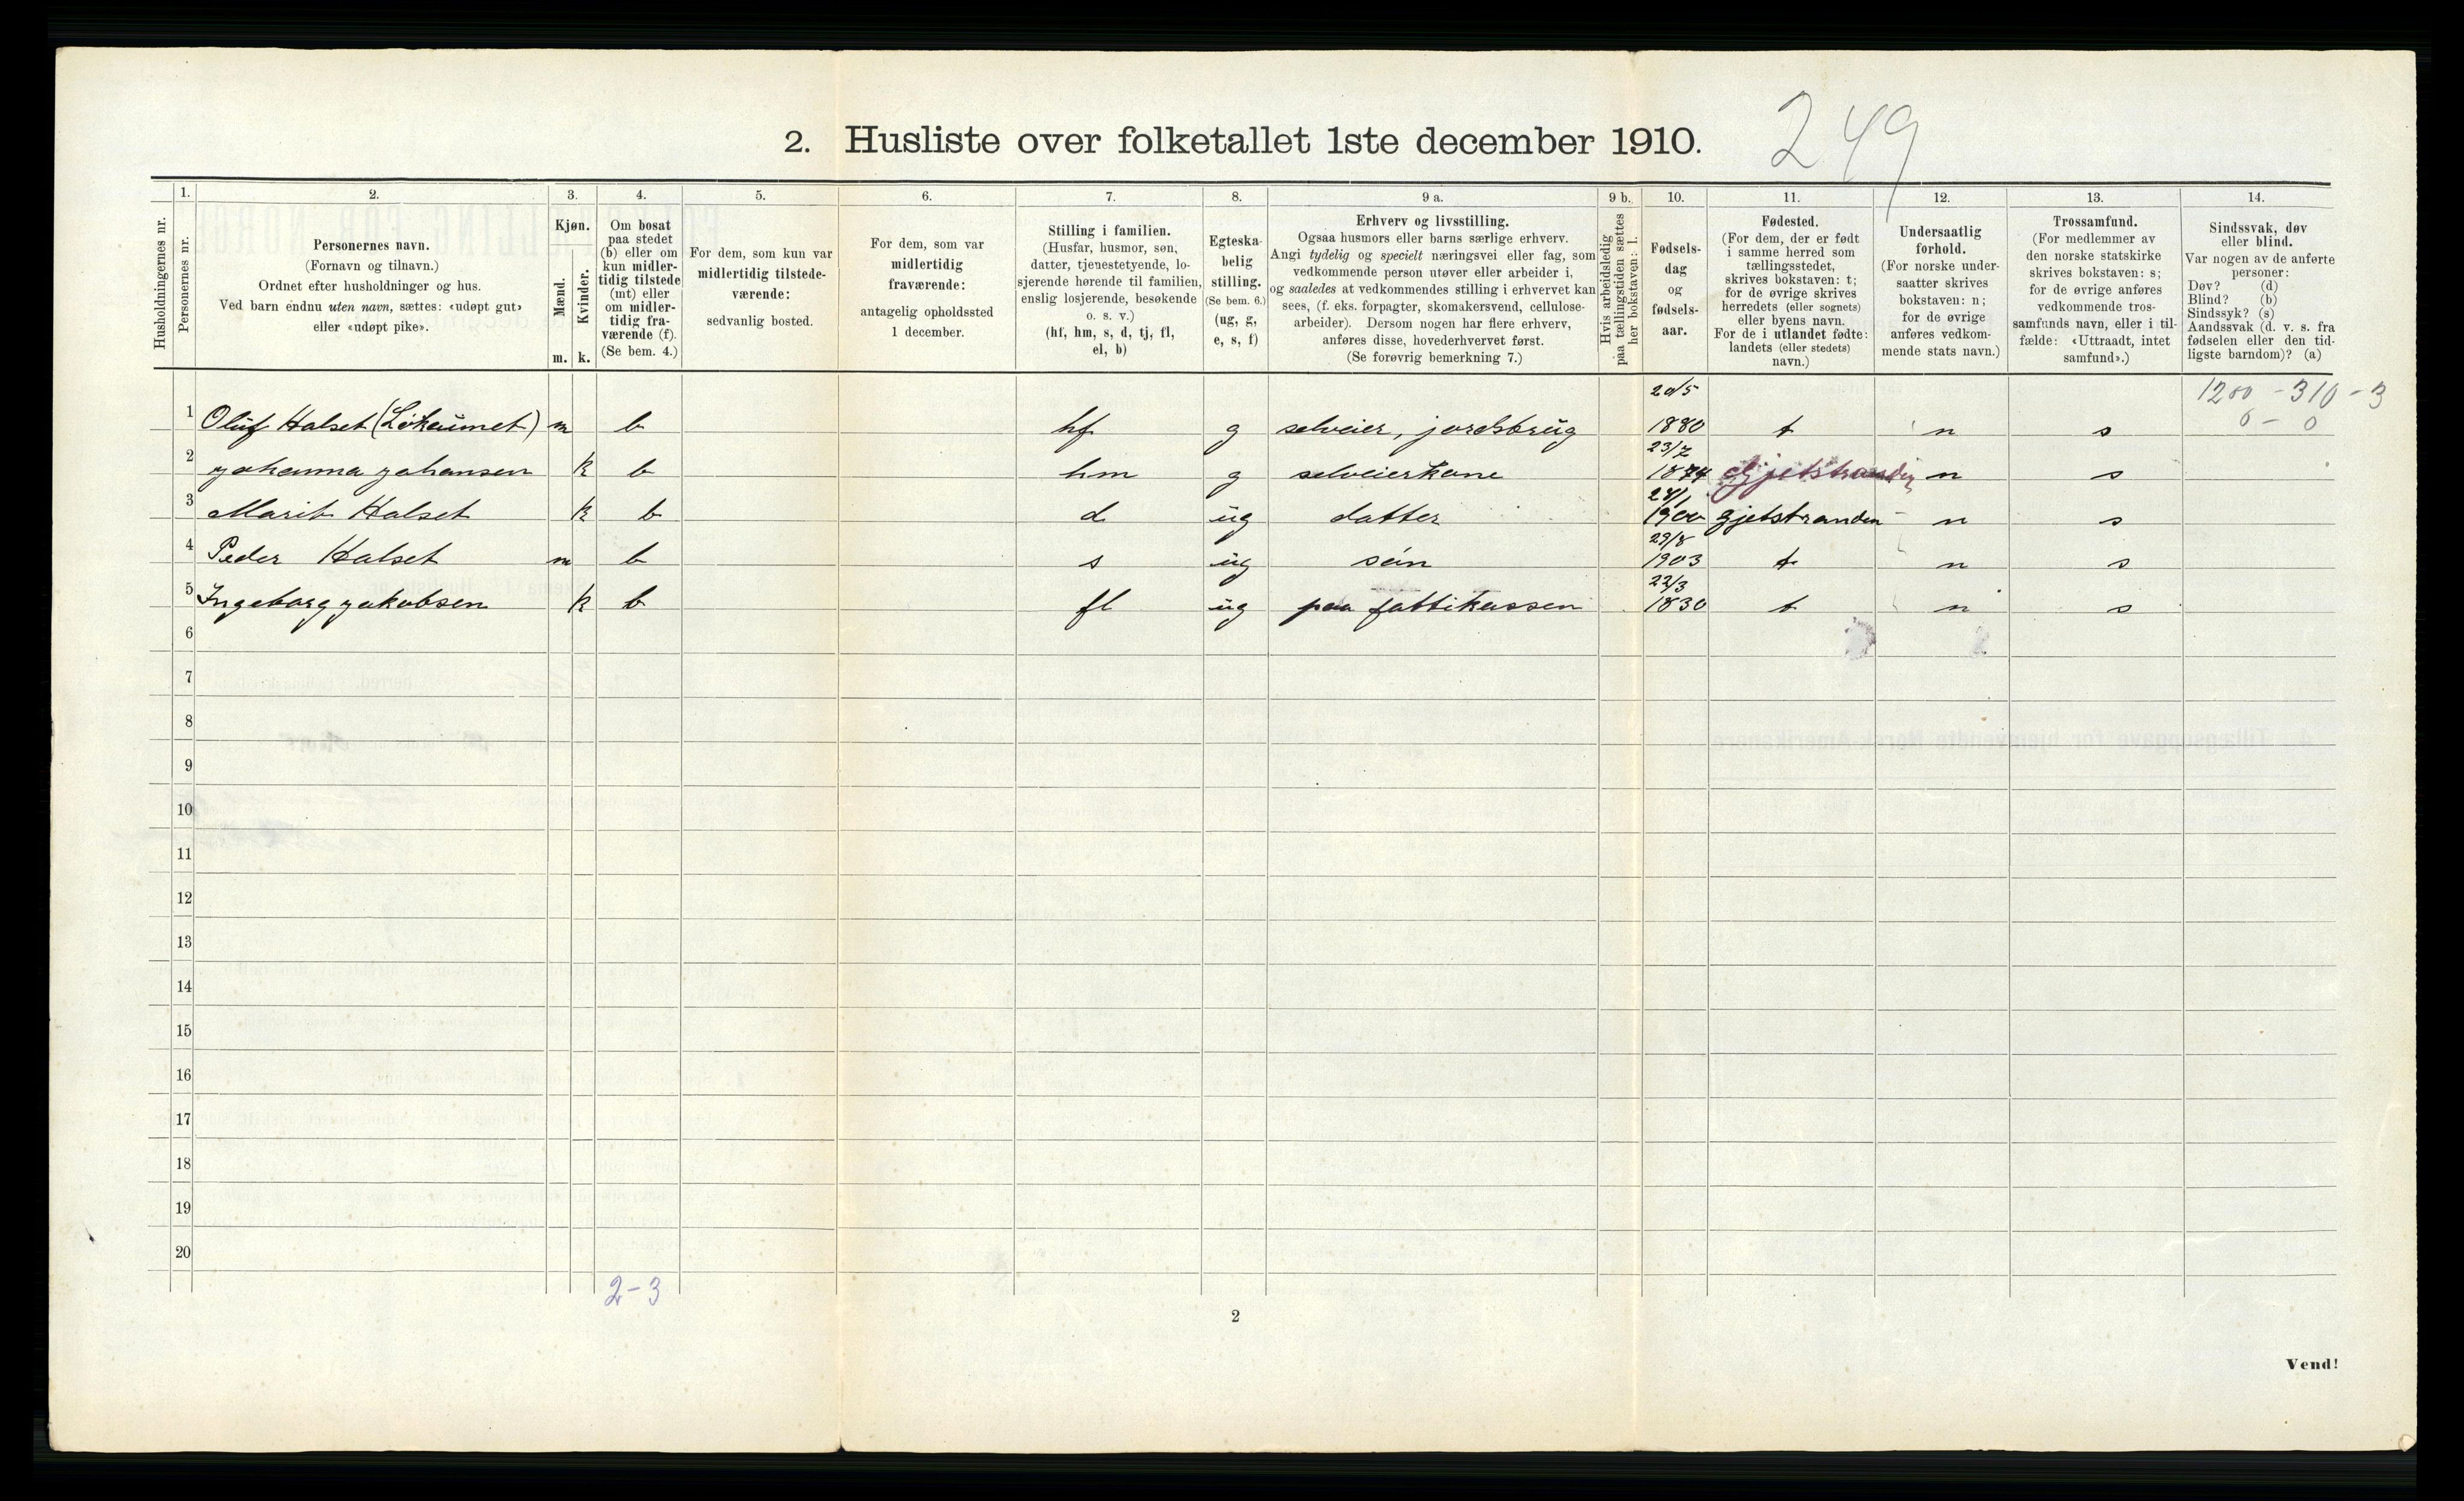 249
2. Husliste over folketallet 1ste december 1910.
Husholdningernes nr.
1.
Personernes nr.
2.
Personernes navn.
(Fornavn og tilnavn.)
Ordnet efter husholdninger og hus.
Ved barn endnu uten navn, sættes: «udøpt gut»
eller «udøpt pike».
3.
Kjøn.
Mænd.
Kvinder.
m. k.
4.
Om bosat
paa stedet
(b) eller om
kun midler-
tidig tilstede
(mt) eller
om midler-
tidig fra-
værende (f).
(Se bem. 4.)
5.
For dem, som kun var
midlertidig tilstede-
værende:
sedvanlig bosted.
6.
For dem, som var
midlertidig
fraværende:
antagelig opholdssted
1 december.
7.
Stilling i familien.
(Husfar, husmor, søn,
datter, tjenestetyende, lo-
sjerende hørende til familien,
enslig losjerende, besøkende
o. s. v.)
(hf, hm, s, d, tj, fl,
el, b)
8.
Egteska-
belig
stilling.
(Se bem. 6.)
(ug, g,
e, s, f)
9 a.
Erhverv og livsstilling.
Ogsaa husmors eller barns særlige erhverv.
Angi tydelig og specielt næringsvei eller fag, som
vedkommende person utøver eller arbeider i,
og saaledes at vedkommendes stilling i erhvervet kan
sees, (f. eks. forpagter, skomakersvend, cellulose-
arbeider). Dersom nogen har flere erhverv,
anføres disse, hovederhvervet først.
(Se forøvrig bemerkning 7.)
9 b.
Hvis arbeidsledig
paa tællingstiden sættes
her bokstaven: l.
10.
Fødsels-
dag
og
fødsels-
aar.
11.
Fødested.
(For dem, der er født
i samme herred som
tællingsstedet,
skrives bokstaven: t;
for de øvrige skrives
herredets (eller sognets)
eller byens navn.
For de i utlandet fødte:
landets (eller stedets)
navn.)
12.
Undersaatlig
forhold.
(For norske under-
saatter skrives
bokstaven: n;
for de øvrige
anføres vedkom-
mende stats navn.)
13.
Trossamfund.
(For medlemmer av
den norske statskirke
skrives bokstaven: s;
for de øvrige anføres
vedkommende tros-
samfunds navn, eller i til-
fælde: «Uttraadt, intet
samfund».)
14.
Sindssvak, døv
eller blind.
Var nogen av de anførte
personer:
Døv? (d)
Blind? (b)
Sindssyk? (s)
Aandssvak (d. v. s. fra
fødselen eller den tid-
ligste barndom)? (a)
1200 - 310 - 3
0 - 0
1 Oluf Halset (Lökaunet) m b hf g selveier, jordsbrug 20/5 1880 t n s
2 Johanna Johansen k b hm g selveierkone 23/7 1874 Gjetstranden n s
3 Marit Halset k b d ug datter 24/1 1900 gjetstranden n s
4 Peder Halset m b s ug sön 29/8 1903 t n s
5 Ingeborg Jakobsen k b fl ug paa fattikassen 22/3 1830 t n s
6
7
8
9
10
11
12
13
14
15
16
17
18
19
20
2-3
2
Vend!